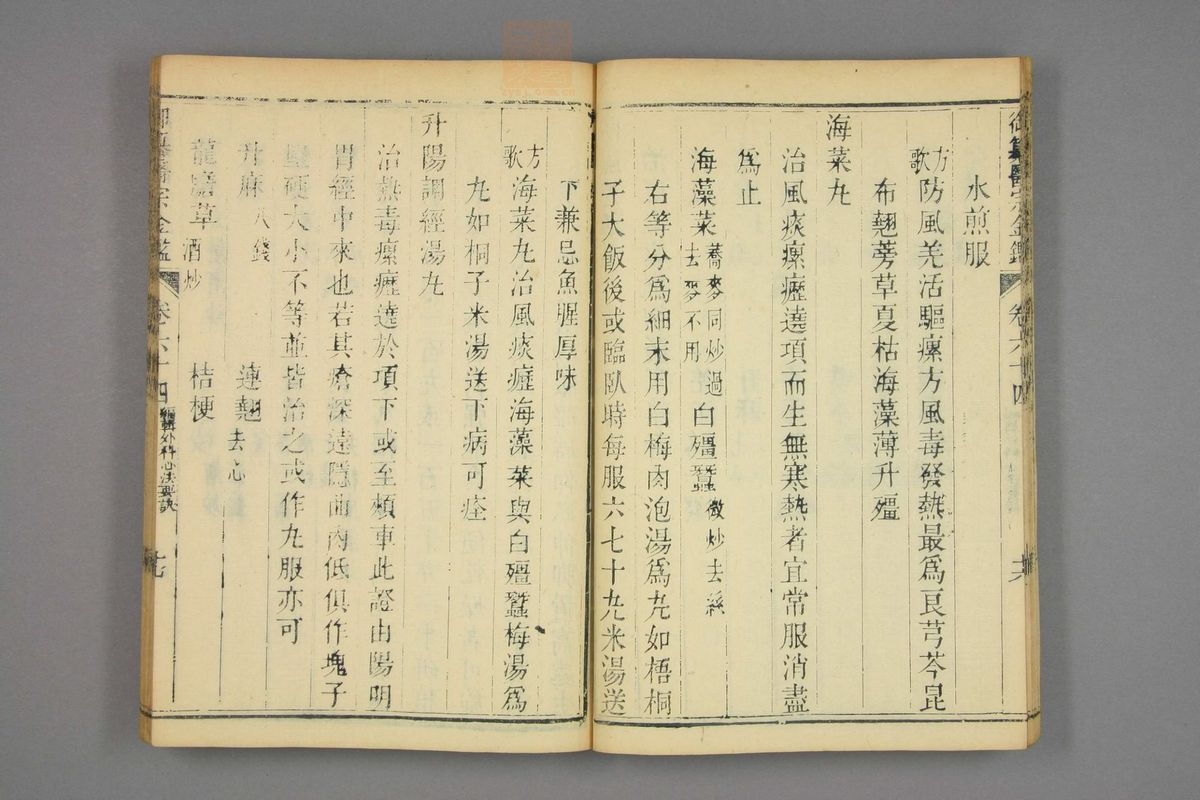 御纂醫宗金鑑 卷六十四
水煎服
方歌 防風羗活驅瘰方風毒發熱最爲良芎芩昆
布翹蒡草夏枯海藻薄升殭
海菜丸
治風痰瘰癧遶項而生無寒熱者宜常服消盡
爲止
海藻菜 蕎麥同炒過去麥不用 白殭蠶 微炒去絲
右等分爲細末用白梅肉泡湯爲丸如梧桐
子大飯後或臨臥時每服六七十丸米湯送
下兼忌魚腥厚味
方歌 海菜丸治風痰癧海藻菜與白殭蠶梅湯爲
丸如桐子米湯送下病可痊
升陽調經湯丸
治熱毒瘰癧遶於項下或至頰車此證由陽明
胃經中來也若其瘡深遠隱曲肉低俱作塊子
堅硬大小不等並皆治之或作丸服亦可
升麻 八錢 連翹 去心
龍膽草 酒炒 桔梗
御纂醫宗金鑑 卷六十四 編輯外科心法要訣 十七